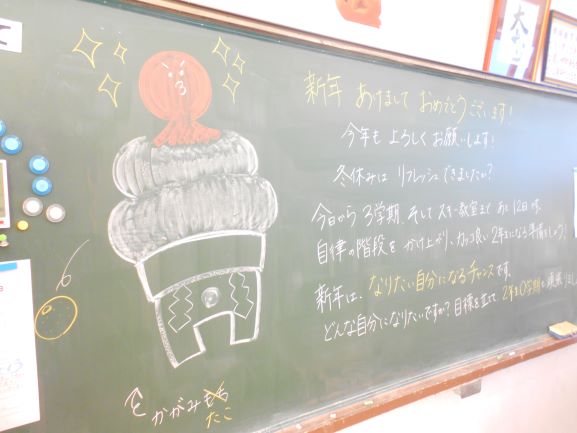 新年 あけまして おめでとうございます！
今年も よろしく お願いします！
冬休みは リフレッシュ できましたか？
今日から 3学期、そして スキー教室まで あと 12日
自律の階段を かけ上がり、カッコ良い 2年生になる準備をしよう！
新年は、なりたい自分になるチャンスです。
どんな自分になりたいですか？目標を立て、2年生0学期
かがみもち
たこ